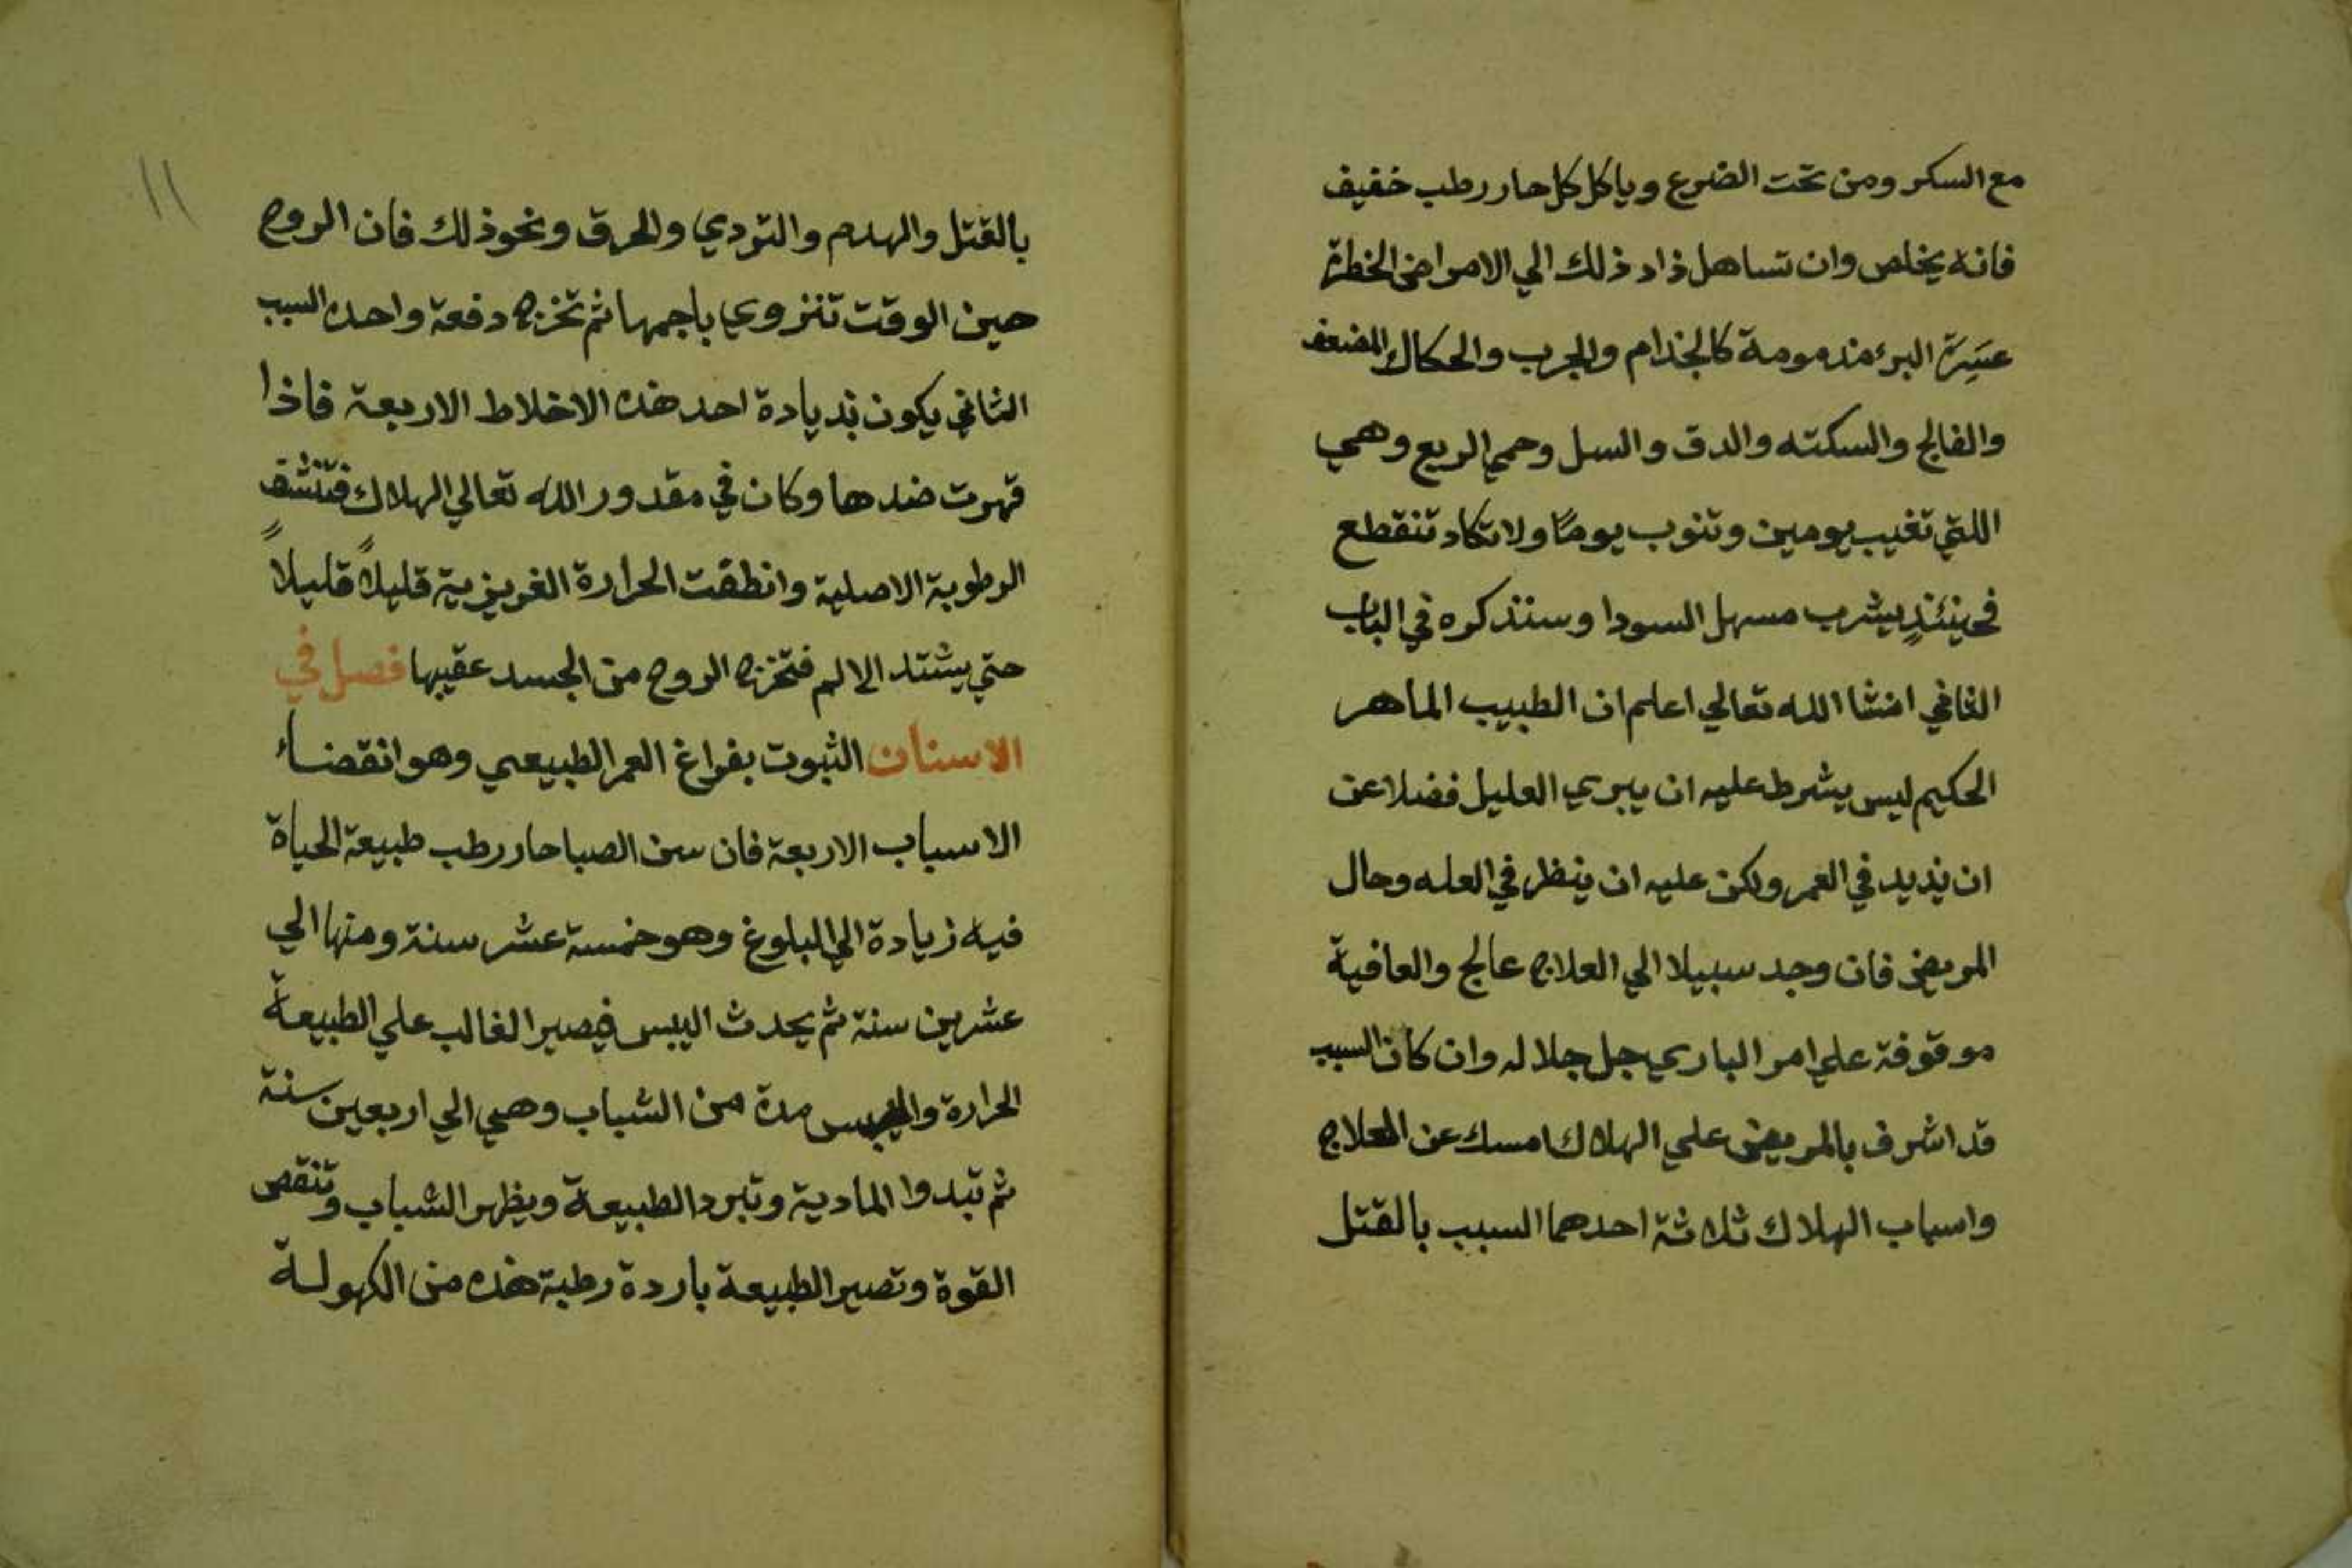 مع السكر ومن تحت الضرع وياكل كل حار رطب خفيف
فانه يخلص وان تساهل زاد ذلك الي الامراض الخطرة
عَسِرَة البرء مذمومة كالجذام والجرب والحكاك المضعف
والفالج والسكته والدق والسل وحمي الربع وهي
اللتي تغيب يومين وتنوب يومًا ولا تكاد تنقطع
فحينئذٍ يشرب مسهل السودا وسنذكره في الباب
الثاني انشا الله تعالي اعلم ان الطبيب الماهر
الحكيم ليس يشرط عليه ان يبري العليل فضلا عن
ان يزيد في العمر ولكن عليه ان ينظر في العله وحال
المريض فان وجد سبيلا الي العلاج عالج والعافية
موقوفة علي امر الباري جل جلاله وان كان السبب
قد اشرف بالمريض علي الهلاك امسك عن العلاج
واسباب الهلاك ثلاثة احدهما السبب بالقتل
١١
بالقتل والهدم والتردي والحرق ونحو ذلك فان الروح
حين الوقت تنزوي باجمها ثم تخرج دفعة واحده السبب
الثاني يكون بزيادة احد هذه الاخلاط الاربعة فاذا
قهرت ضدها وكان في مقدور الله تعالي الهلاك فتنشف
الرطوبة الاصلية وانطفت الحرارة الغريزية قليلاً قليلاً
حتي يشتد الالم فتخرج الروح من الجسد عقيبها فصل في
الاسنان الثبوت بفراغ العمر الطبيعي وهو انقضاء
الاسباب الاربعة فان سن الصبا حار رطب طبيعة الحياة
فيه زيادة الي البلوغ وهو خمسة عشر سنة ومنها الي
عشرين سنة ثم يحدث اليبس فيصير الغالب علي الطبيعة
الحرارة واليبس مدة من الشباب وهي الي اربعين سنة
ثم تبدوا المادية وتبرد الطبيعة ويظهر الشباب وتنقص
القوة وتصير الطبيعة باردة رطبة هذه من الكهولة